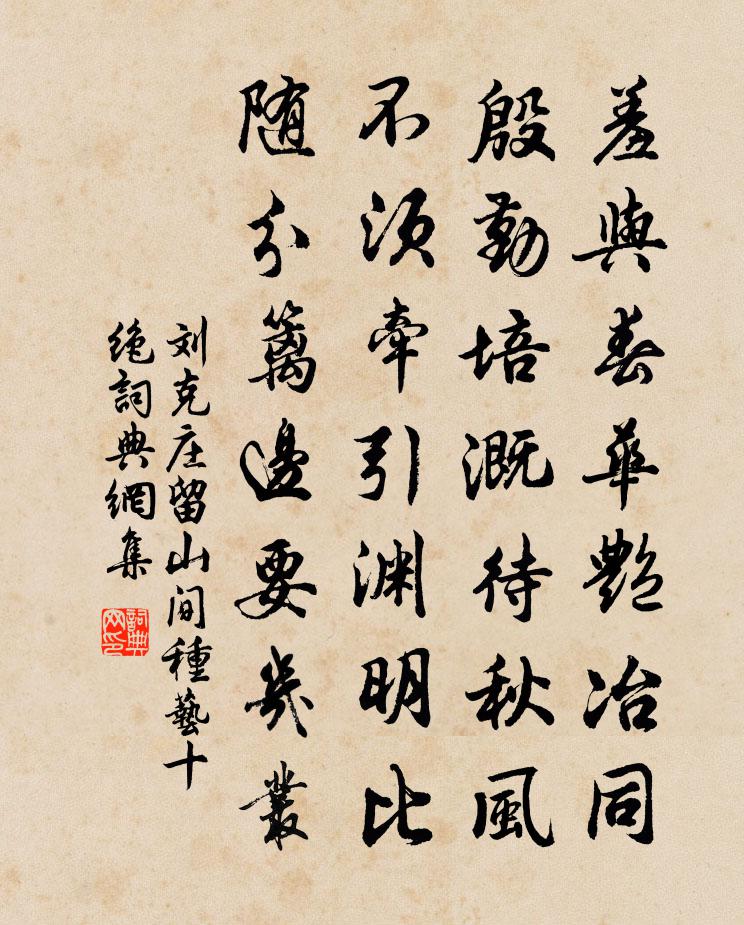 羞與春華艶冶同
殷勤培溉待秋風
不須牽引渊明比
随分籬邊要幾叢
刘克庄留山间種藝十
绝詞典網集
詞典網印